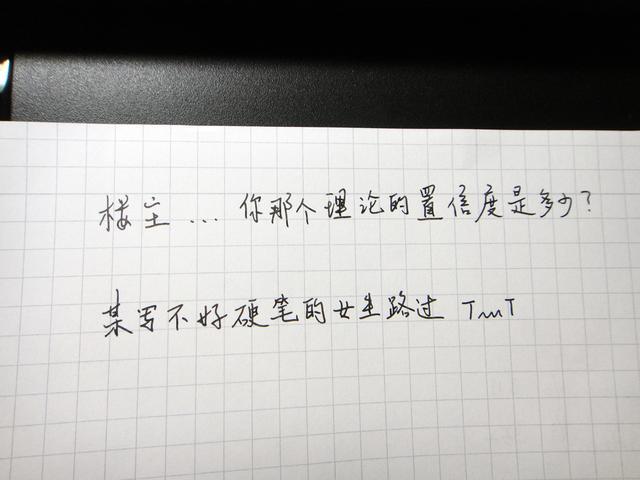 楼主... 你那个理论的置信度是多少?
某写不好硬笔的女生路过 TmT